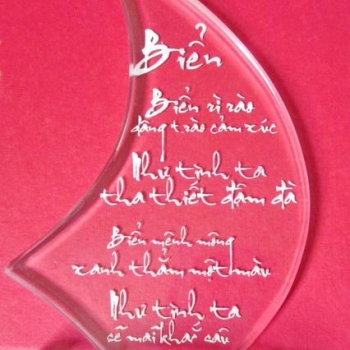 Biển
Biển rì rào
dâng trào cảm xúc
Như tình ta
tha thiết đậm đà
Biển mênh mông
xanh thẳm một màu
Như tình ta
sẽ mãi khắc sâu